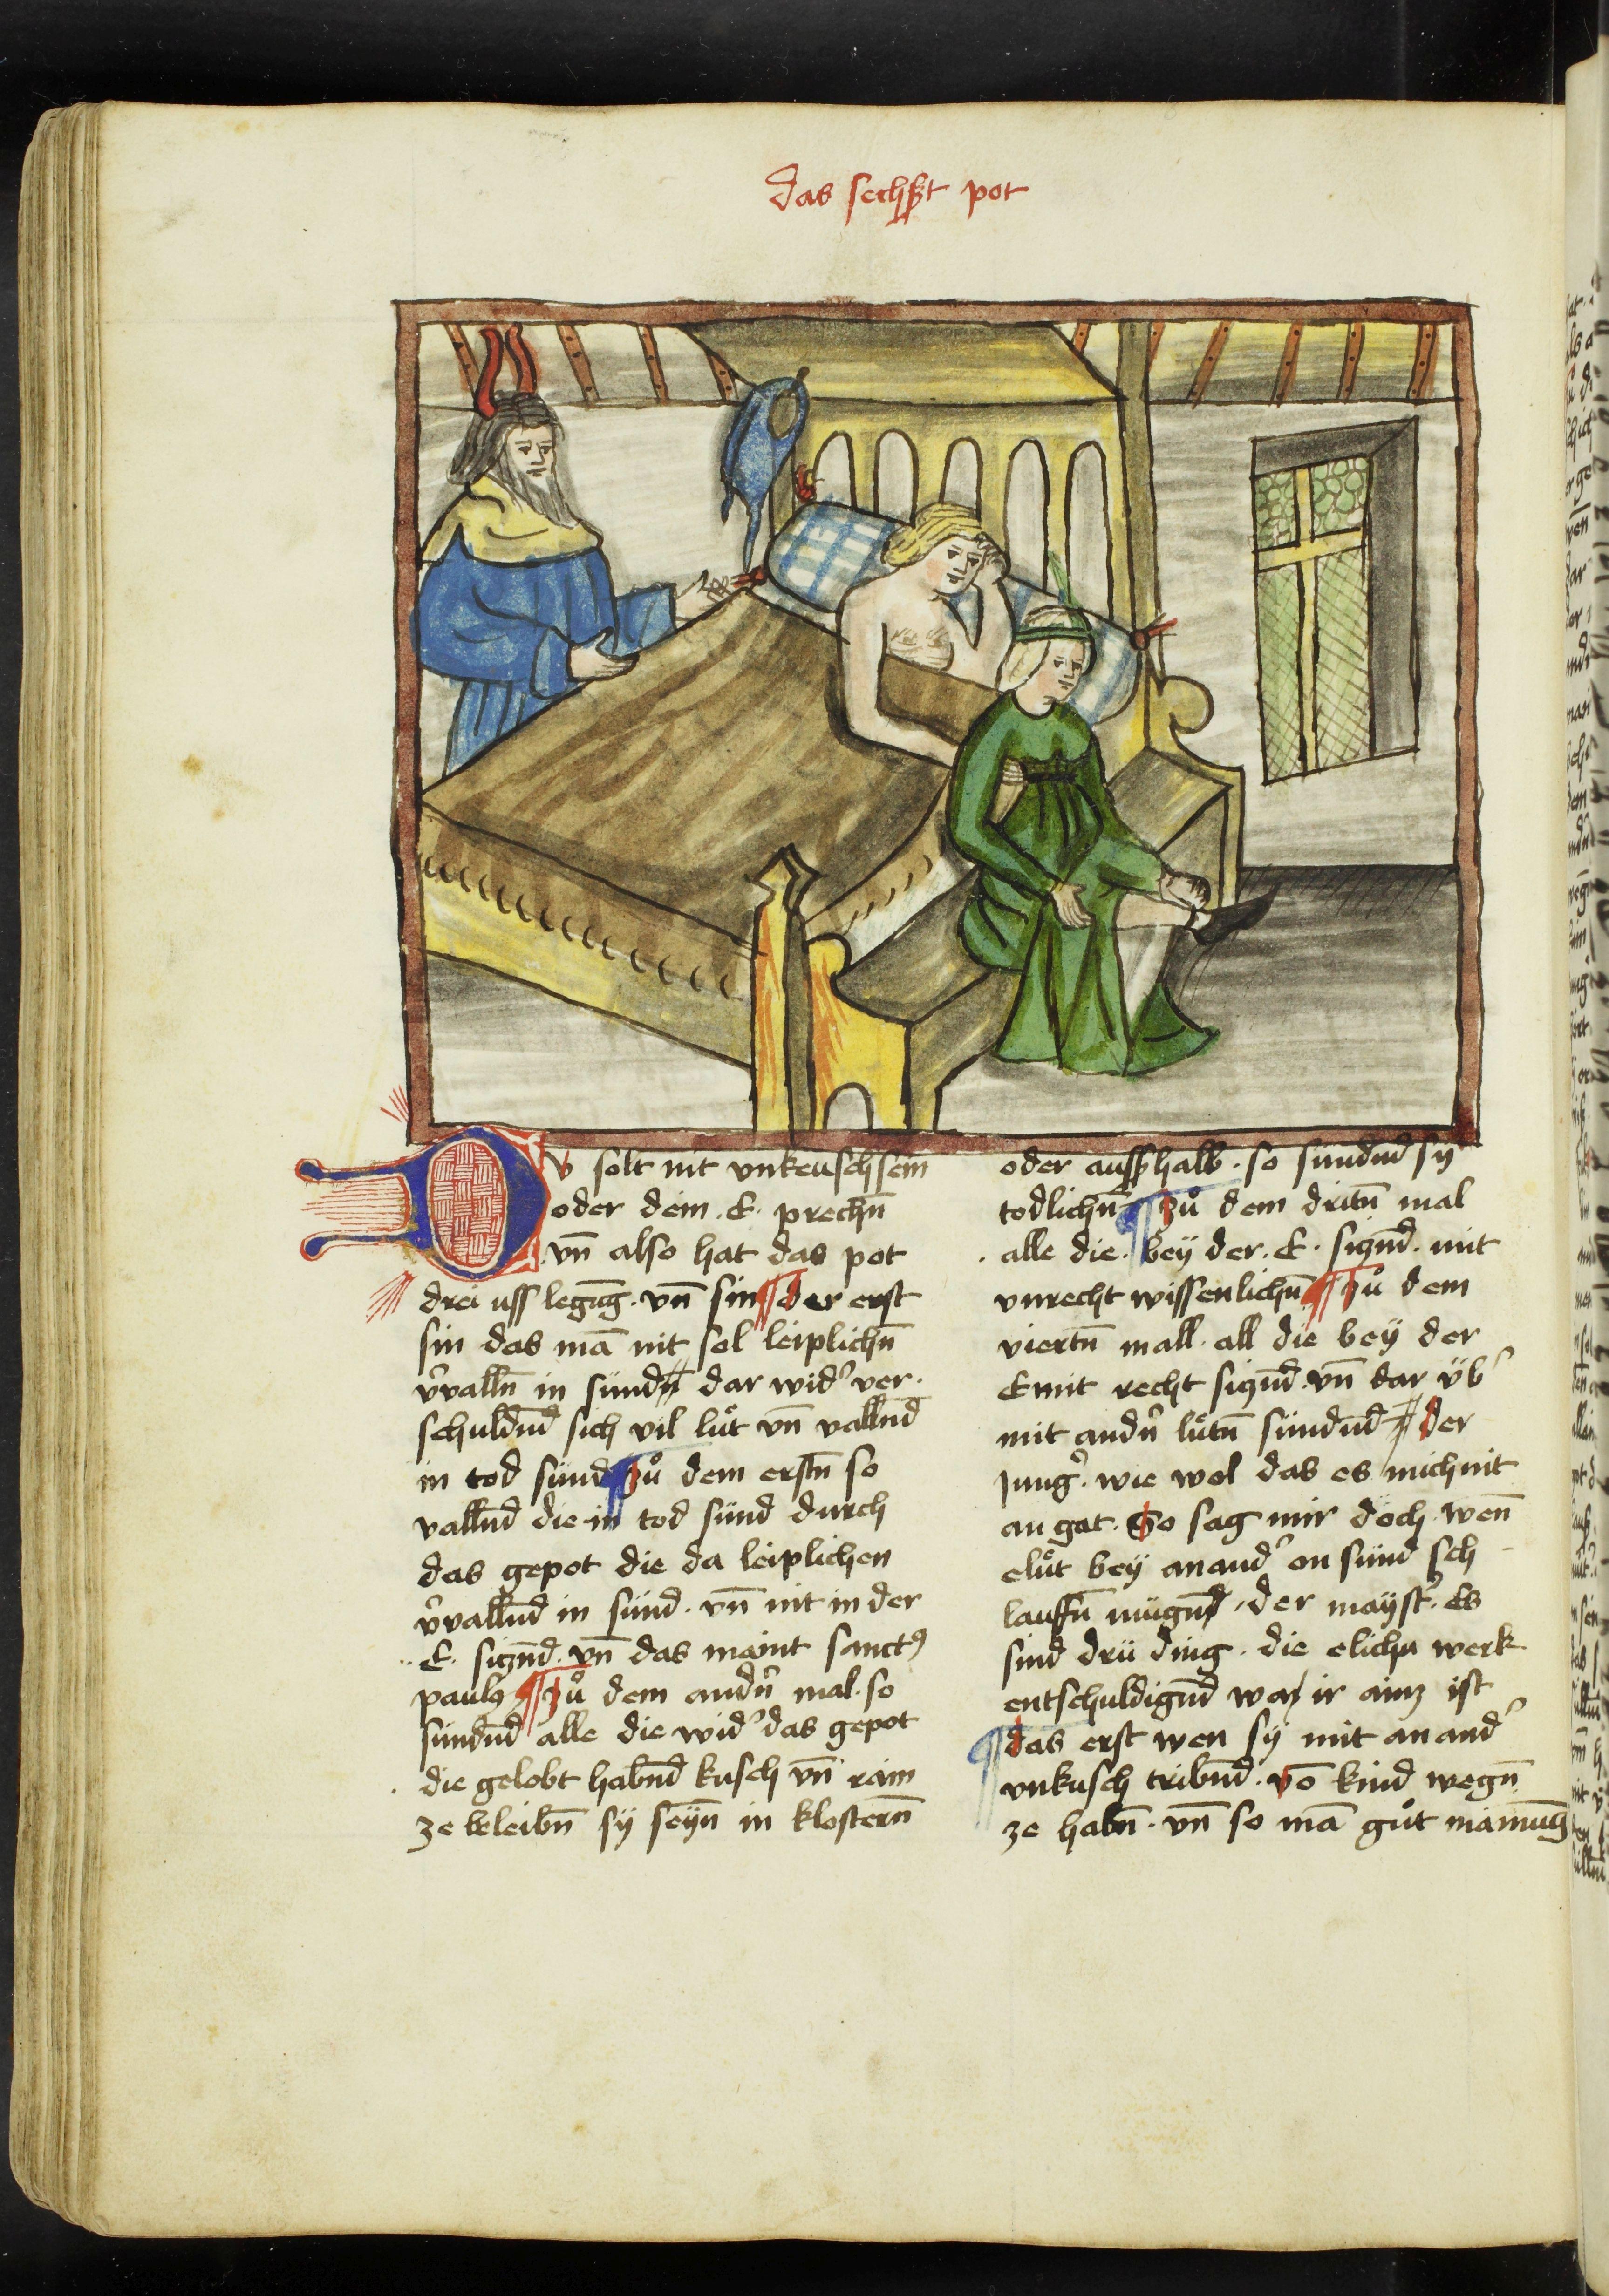 das sechst pot
Dv solt nit vnkeusch sein
oder dein .E. prechn̄
vn̄ also hat das pot
drei uss legūg. vn̄ sin der erst
sin das mā nit sol leiplichn̄
v̉valln̄ in sündn dar wid̉ ver
schuldn̄d sich vil lůt vn̄ valln̄d
in tod sünd zů dem erstn̄ so
valln̄d die in tod sünd durch
das gepot die da leiplichen
v̉valln̄d in sünd. vn̄ nit in der
.E. sizn̄d. vn̄ das maint sanctꝰ
paulꝰ zů dem andn̉ mal. so
sündn̄d alle die wid̉ das gepot
die gelobt habn̄d kusch vn̄ rain
ze beleibn̄ sy seyn̄ in klostern̄
oder aussshalb. so sündn̄d sy
todlichn̄ zů dem dritn̄ mal
alle die. bey der .E. sizn̄d. mit
vnrecht wissenlichn̄ zů dem
viertn̄ mall. all die bey der
E mit recht sizn̄d. vn̄ dar üb̉
mit andn̉ lůtn̄ sündn̄d der
Jung̉. wie wol das es mich nit
an gat. So sag mir doch wen̄
elůt bey anand̉ on sünd sch
lauffn̄ mügn̄d der mayst̉. Es
sind drü ding. die elichn werk
entschuldign̄d wa ir ainz ist
das erst wen sy mit anand̉
vnkusch tribn̄d. vō kind wegn̄
ze habn̄. vn̄ so mā gůt mainūg